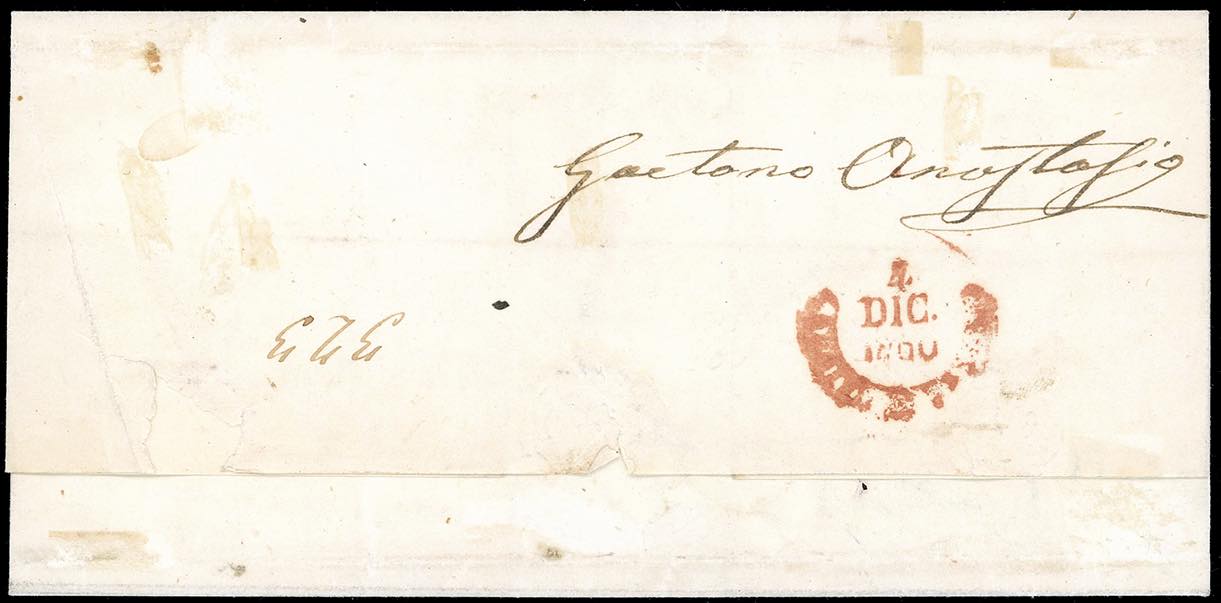 Gaetano Anastasio
4
DIC.
323